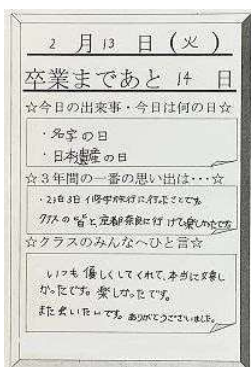 2月13日(火)
卒業まであと14日
☆今日の出来事・今日は何の日☆
・名字の日
・日本遺産の日
☆3年間の一番の思い出は・・・☆
・2泊3日 修学旅行に行ったことです
クラスの皆と京都奈良に行けて楽しかったです
☆クラスのみんなへひと言☆
いつも優しくしてくれて、本当に嬉し
かったです。楽しかったです。
また会いたいです。ありがとうございました。